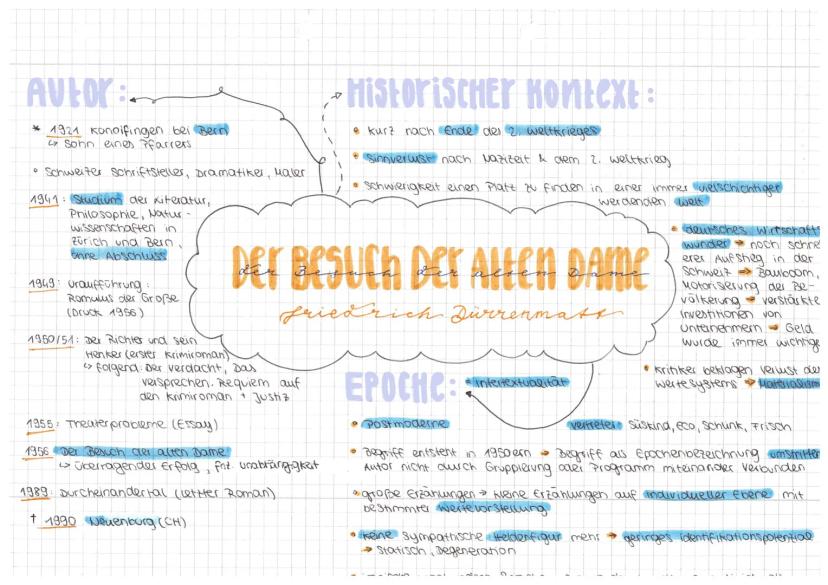 Autor:
* 1921 Konolfingen bei Bern
↳ Sohn eines Pfarrers
• Schweizer Schriftsteller, Dramatiker, Maler
1941: Studium der Literatur,
Philosophie, Natur-
wissenschaften in
Zürich und Bern,
ohne Abschluss
1949: Uraufführung:
Romulus der Große
(Druck 1956)
1950/51: Der Richter und sein
Henker (erster Krimiroman)
↳ folgend: Der Verdacht, Das
Versprechen. Requiem auf
den Krimiroman + Justiz
1955: Theaterprobleme (Essay)
1956 Der Besuch der alten Dame
↳ überragender Erfolg, fnz. Unabhängigkeit
1989: Durcheinandertal (letzter Roman)
† 1990 Neuenburg (CH)
Historischer Kontext:
• kurz nach Ende des 2. Weltkrieges
• Sinnverlust nach Nazizeit & dem 2. Weltkrieg
• Schwierigkeit einen Platz zu finden in einer immer vielschichtiger
werdenden Welt
• deutsches Wirtschafts
wunder → noch
eres Aufstieg in der
Schweiz → Bauboom,
Motorisierung der Be-
völkerung → verstärkte
Investitionen von
Unternehmern → Geld
wurde immer wichtige
• Kritiker beklagen Verlust des
Wertesystems → Materialism
Der Besuch Der Alten Dame
der Besuch der alten Dame
Friedrich Dürrenmatt
Epoche:
• Intertextualität
• Postmoderne
Vertreter: Süskind, Eco, Schlink, Frisch
• Begriff entsteht in 1950ern → Begriff als Epochenbezeichnung umstritten
Autor nicht durch Gruppierung oder Programm miteinander verbunden
• große Erzählungen → kleine Erzählungen auf individueller Ebene mit
bestimmter Wertevorstellung
• keine sympathische Heldenfigur mehr → geringes Identifikationspotential
→ statisch, Degeneration